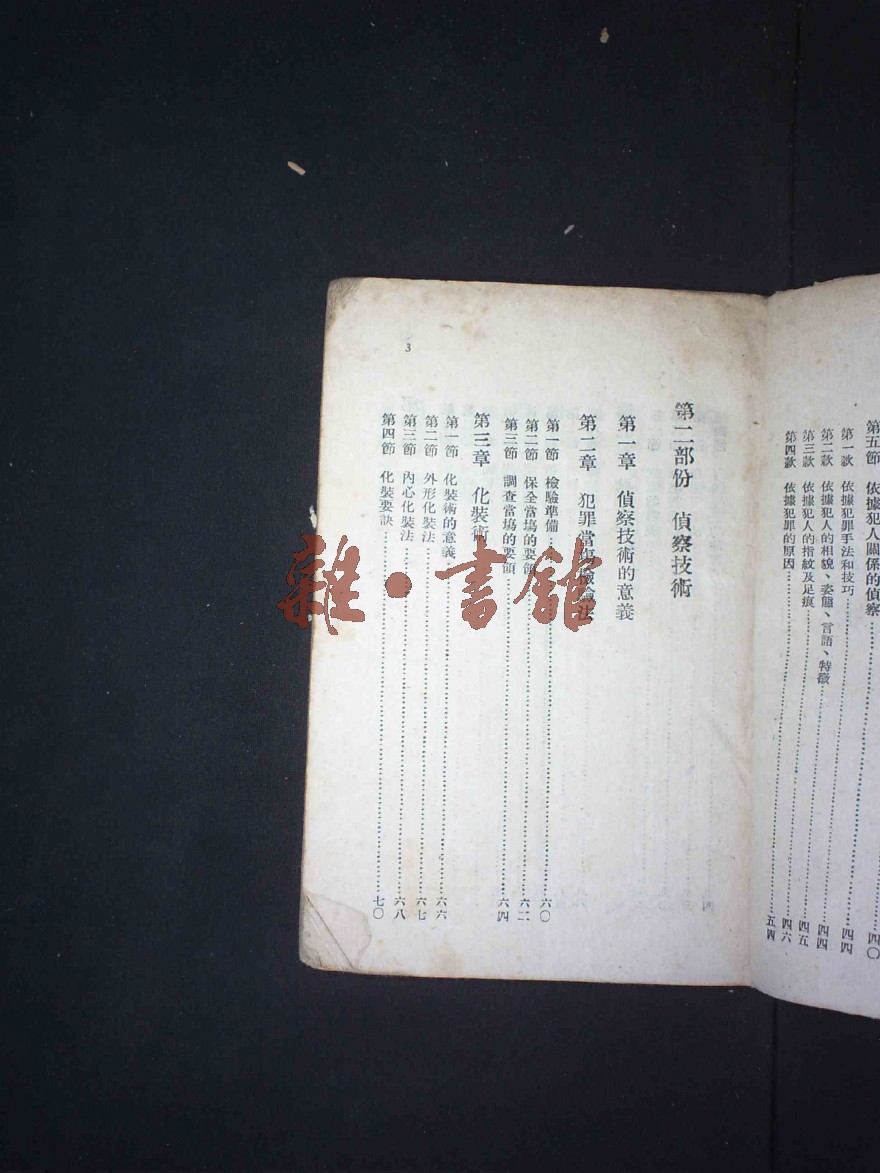 第五節 依據犯人關係的偵察……四〇
第一款 依據犯罪手法和技巧……四四
第二款 依據犯人的相貌、姿態、言語、特徵……四四
第三款 依據犯人的指紋及足痕……四五
第四款 依據犯罪的原因……四六
……五四
3
第二部份 偵察技術
第一章 偵察技術的意義
第二章 犯罪當場檢驗法
第一節 檢驗準備……六〇
第二節 保全當場的要領……六二
第三節 調查當場的要領……六四
第三章 化裝術
第一節 化裝術的意義……六六
第二節 外形化裝法……六七
第三節 內心化裝法……六八
第四節 化裝要訣……七〇
雜·書館